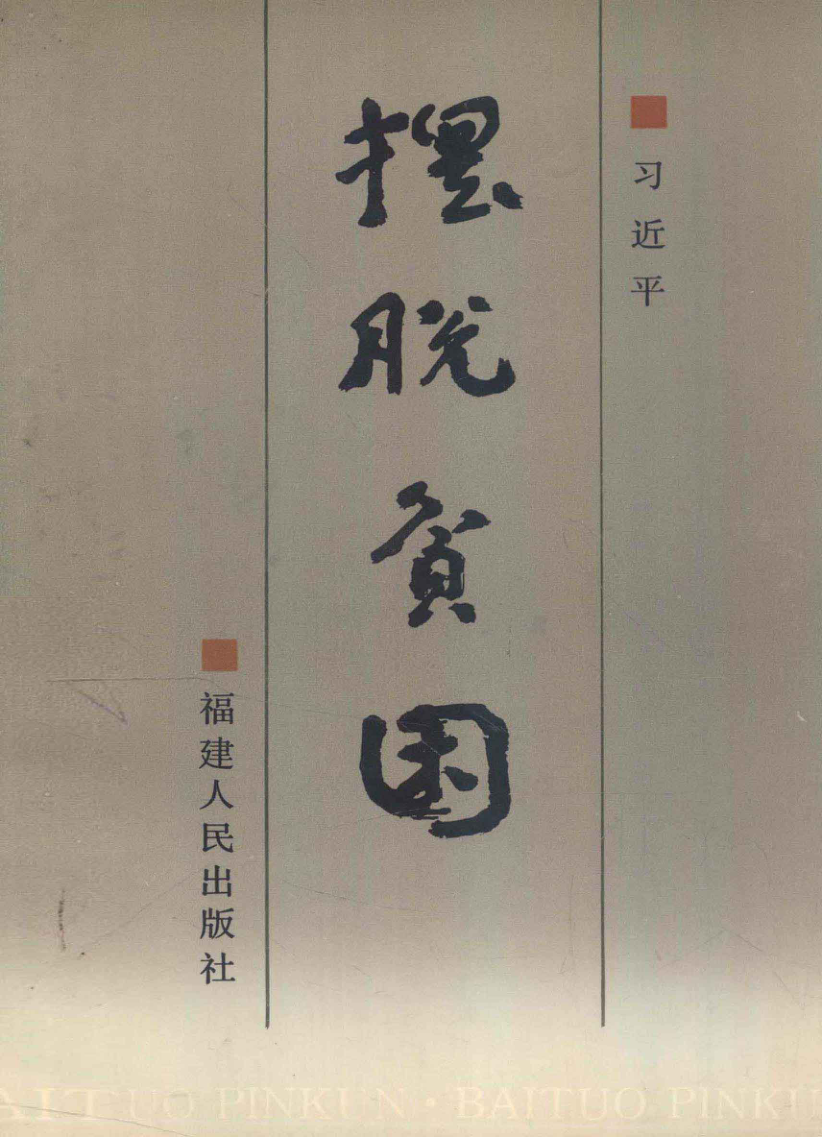 习近平
摆脱贫困
福建人民出版社
AITUO PINKUN · BAITUO PINKU